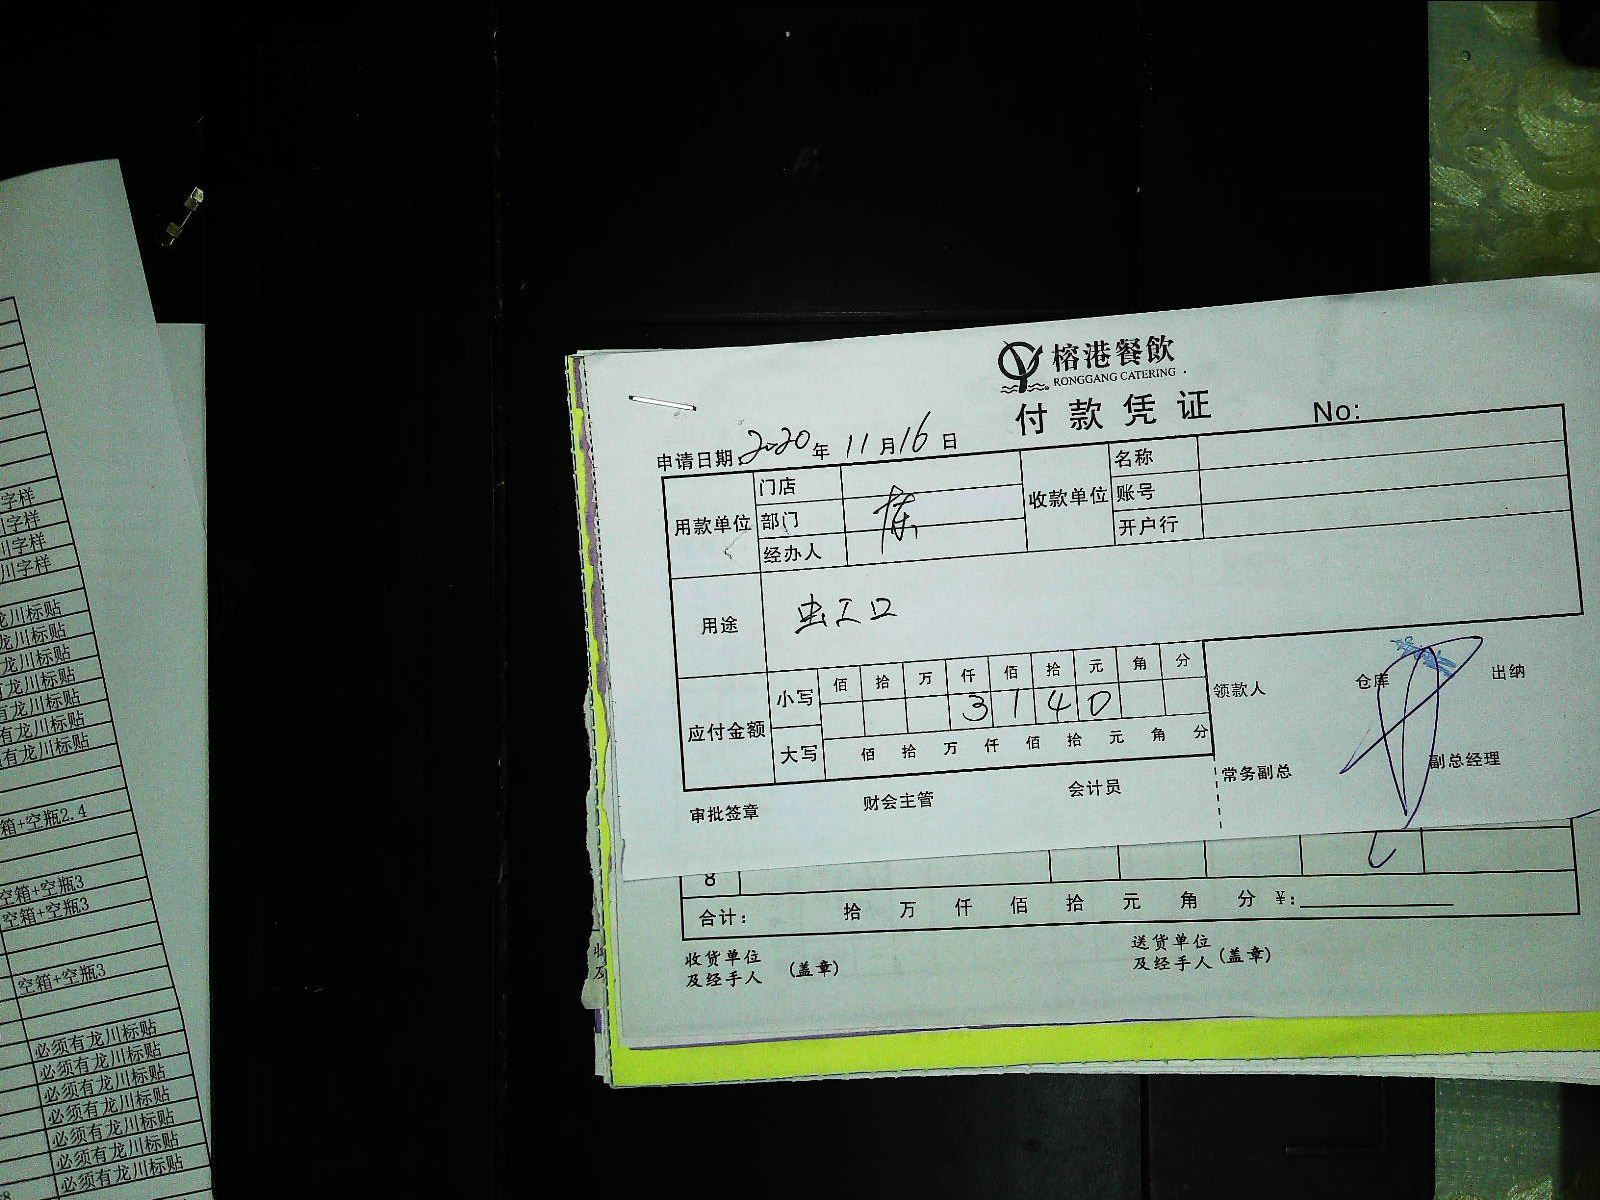 字样
川字样
川字样
川字样
龙川标贴
龙川标贴
龙川标贴
有龙川标贴
有龙川标贴
有龙川标贴
有龙川标贴
箱+空瓶2.4
空箱+空瓶3
空箱+空瓶3
空箱+空瓶3
必须有龙川标贴
必须有龙川标贴
必须有龙川标贴
必须有龙川标贴
必须有龙川标贴
必须有龙川标贴
必须有龙川标贴
榕港餐飲
RONGGANG CATERING
付款凭证
No:
申请日期 2020 年 11 月 16 日
用款单位
门店
部门
经办人
收款单位
名称
账号
开户行
用途
应付金额
小写
佰 拾 万 仟 佰 拾 元 角 分
3 1 4 0
大写
佰 拾 万 仟 佰 拾 元 角 分
领款人 仓库 出纳
常务副总 副总经理
审批签章 财会主管 会计员
8
合计: 拾 万 仟 佰 拾 元 角 分 ¥:
收货单位
及经手人 (盖章)
送货单位
及经手人 (盖章)